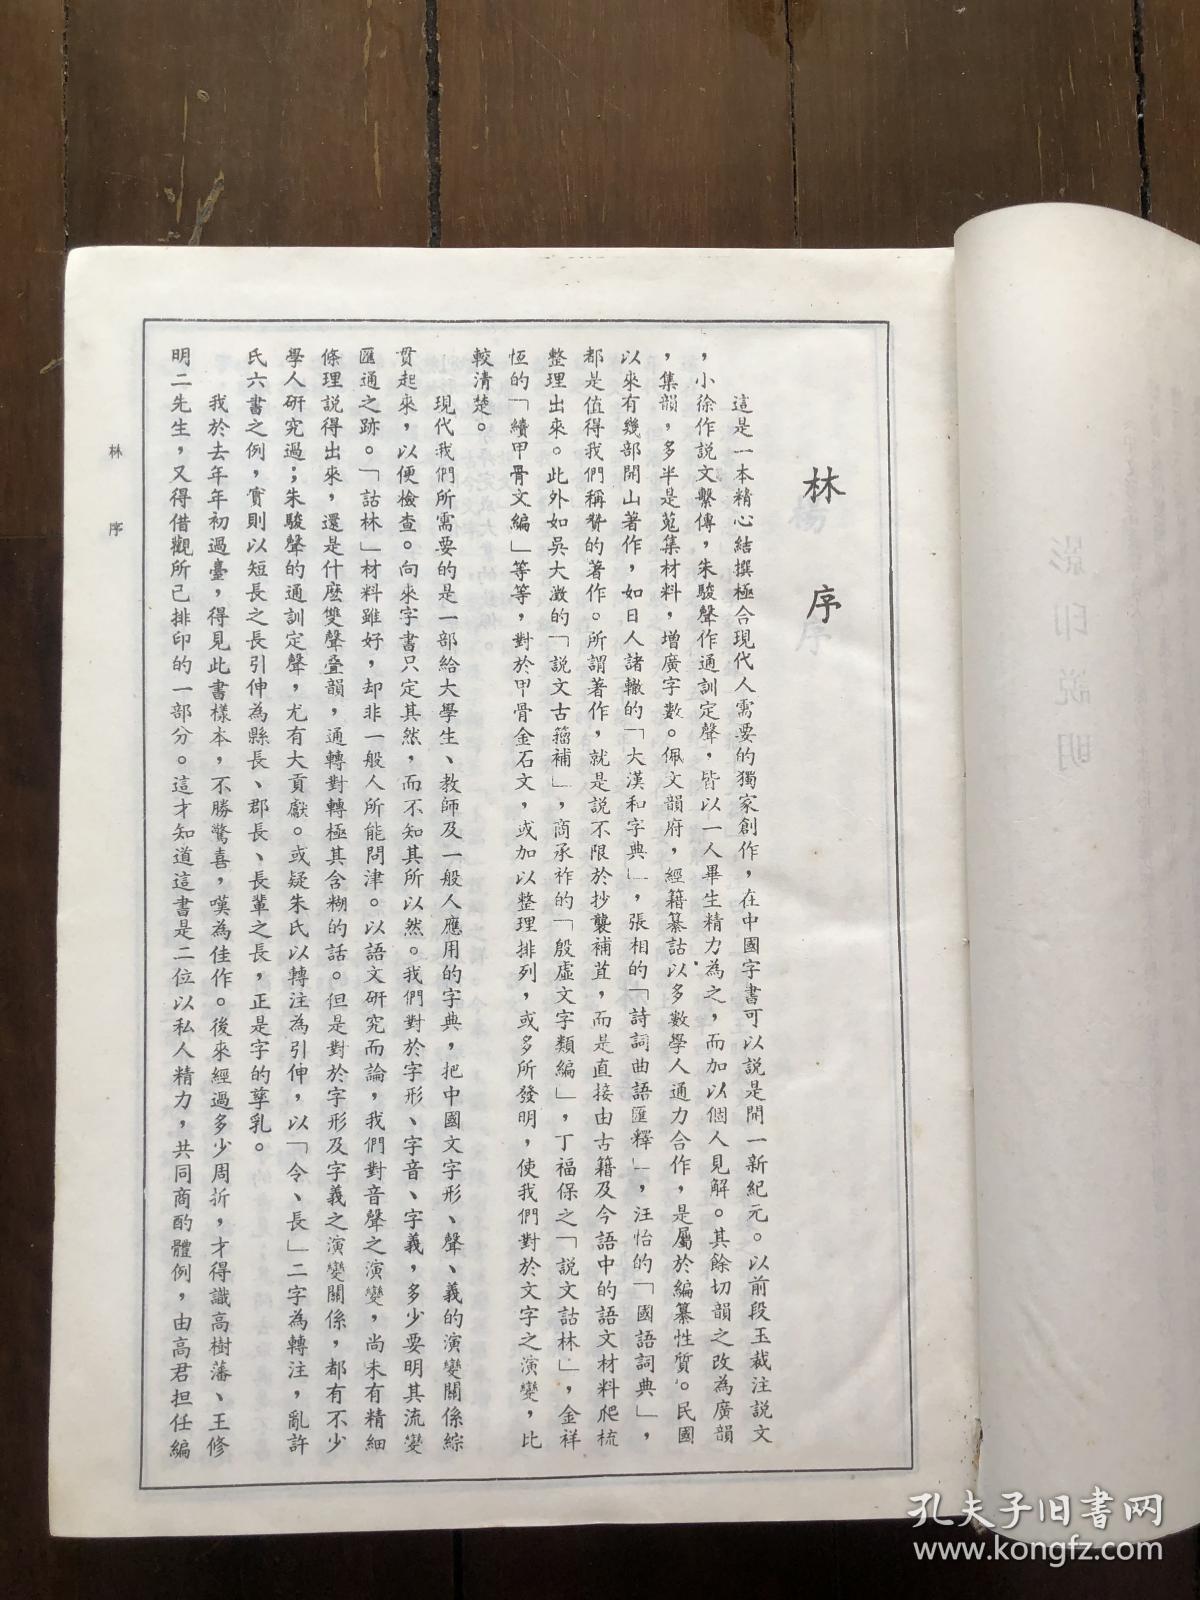 林序
這是一本精心結撰極合現代人需要的獨家創作，在中國字書可以說是開一新紀元。以前段玉裁注說文
，小徐作說文繫傳，朱駿聲作通訓定聲，皆以一人畢生精力為之，而加以個人見解。其餘切韻之改為廣韻
，集韻，多半是蒐集材料，增廣字數。佩文韻府，經籍纂詁以多數學人通力合作，是屬於編纂性質。民國
以來有幾部開山著作，如日人諸轍的「大漢和字典」，張相的「詩詞曲語匯釋」，汪怡的「國語詞典」，
都是值得我們稱贊的著作。所謂著作，就是說不限於抄襲補苴，而是直接由古籍及今語中的語文材料爬梳
整理出來。此外如吳大澂的「說文古籀補」，商承祚的「殷虛文字類編」，丁福保之「說文詁林」，金祥
恆的「續甲骨文編」等等，對於甲骨金石文，或加以整理排列，或多所發明，使我們對於文字之演變，比
較清楚。
現代我們所需要的是一部給大學生、教師及一般人應用的字典，把中國文字形、聲、義的演變關係綜
貫起來，以便檢查。向來字書只定其然，而不知其所以然。我們對於字形、字音、字義，多少要明其流變
匯通之跡。「詁林」材料雖好，却非一般人所能問津。以語文研究而論，我們對音聲之演變，尚未有精細
條理說得出來，還是什麼雙聲叠韻，通轉對轉極其含糊的話。但是對於字形及字義之演變關係，都有不少
學人研究過；朱駿聲的通訓定聲，尤有大貢獻。或疑朱氏以轉注為引伸，以「令、長」二字為轉注，亂許
氏六書之例，實則以短長之長引伸為縣長、郡長、長輩之長，正是字的孳乳。
我於去年年初過臺，得見此書樣本，不勝驚喜，嘆為佳作。後來經過多少周折，才得識高樹藩、王修
明二先生，又得借觀所已排印的一部分。這才知道這書是二位以私人精力，共同商酌體例，由高君担任編
林序
影印說明
孔夫子旧书网
www.kongfz.com